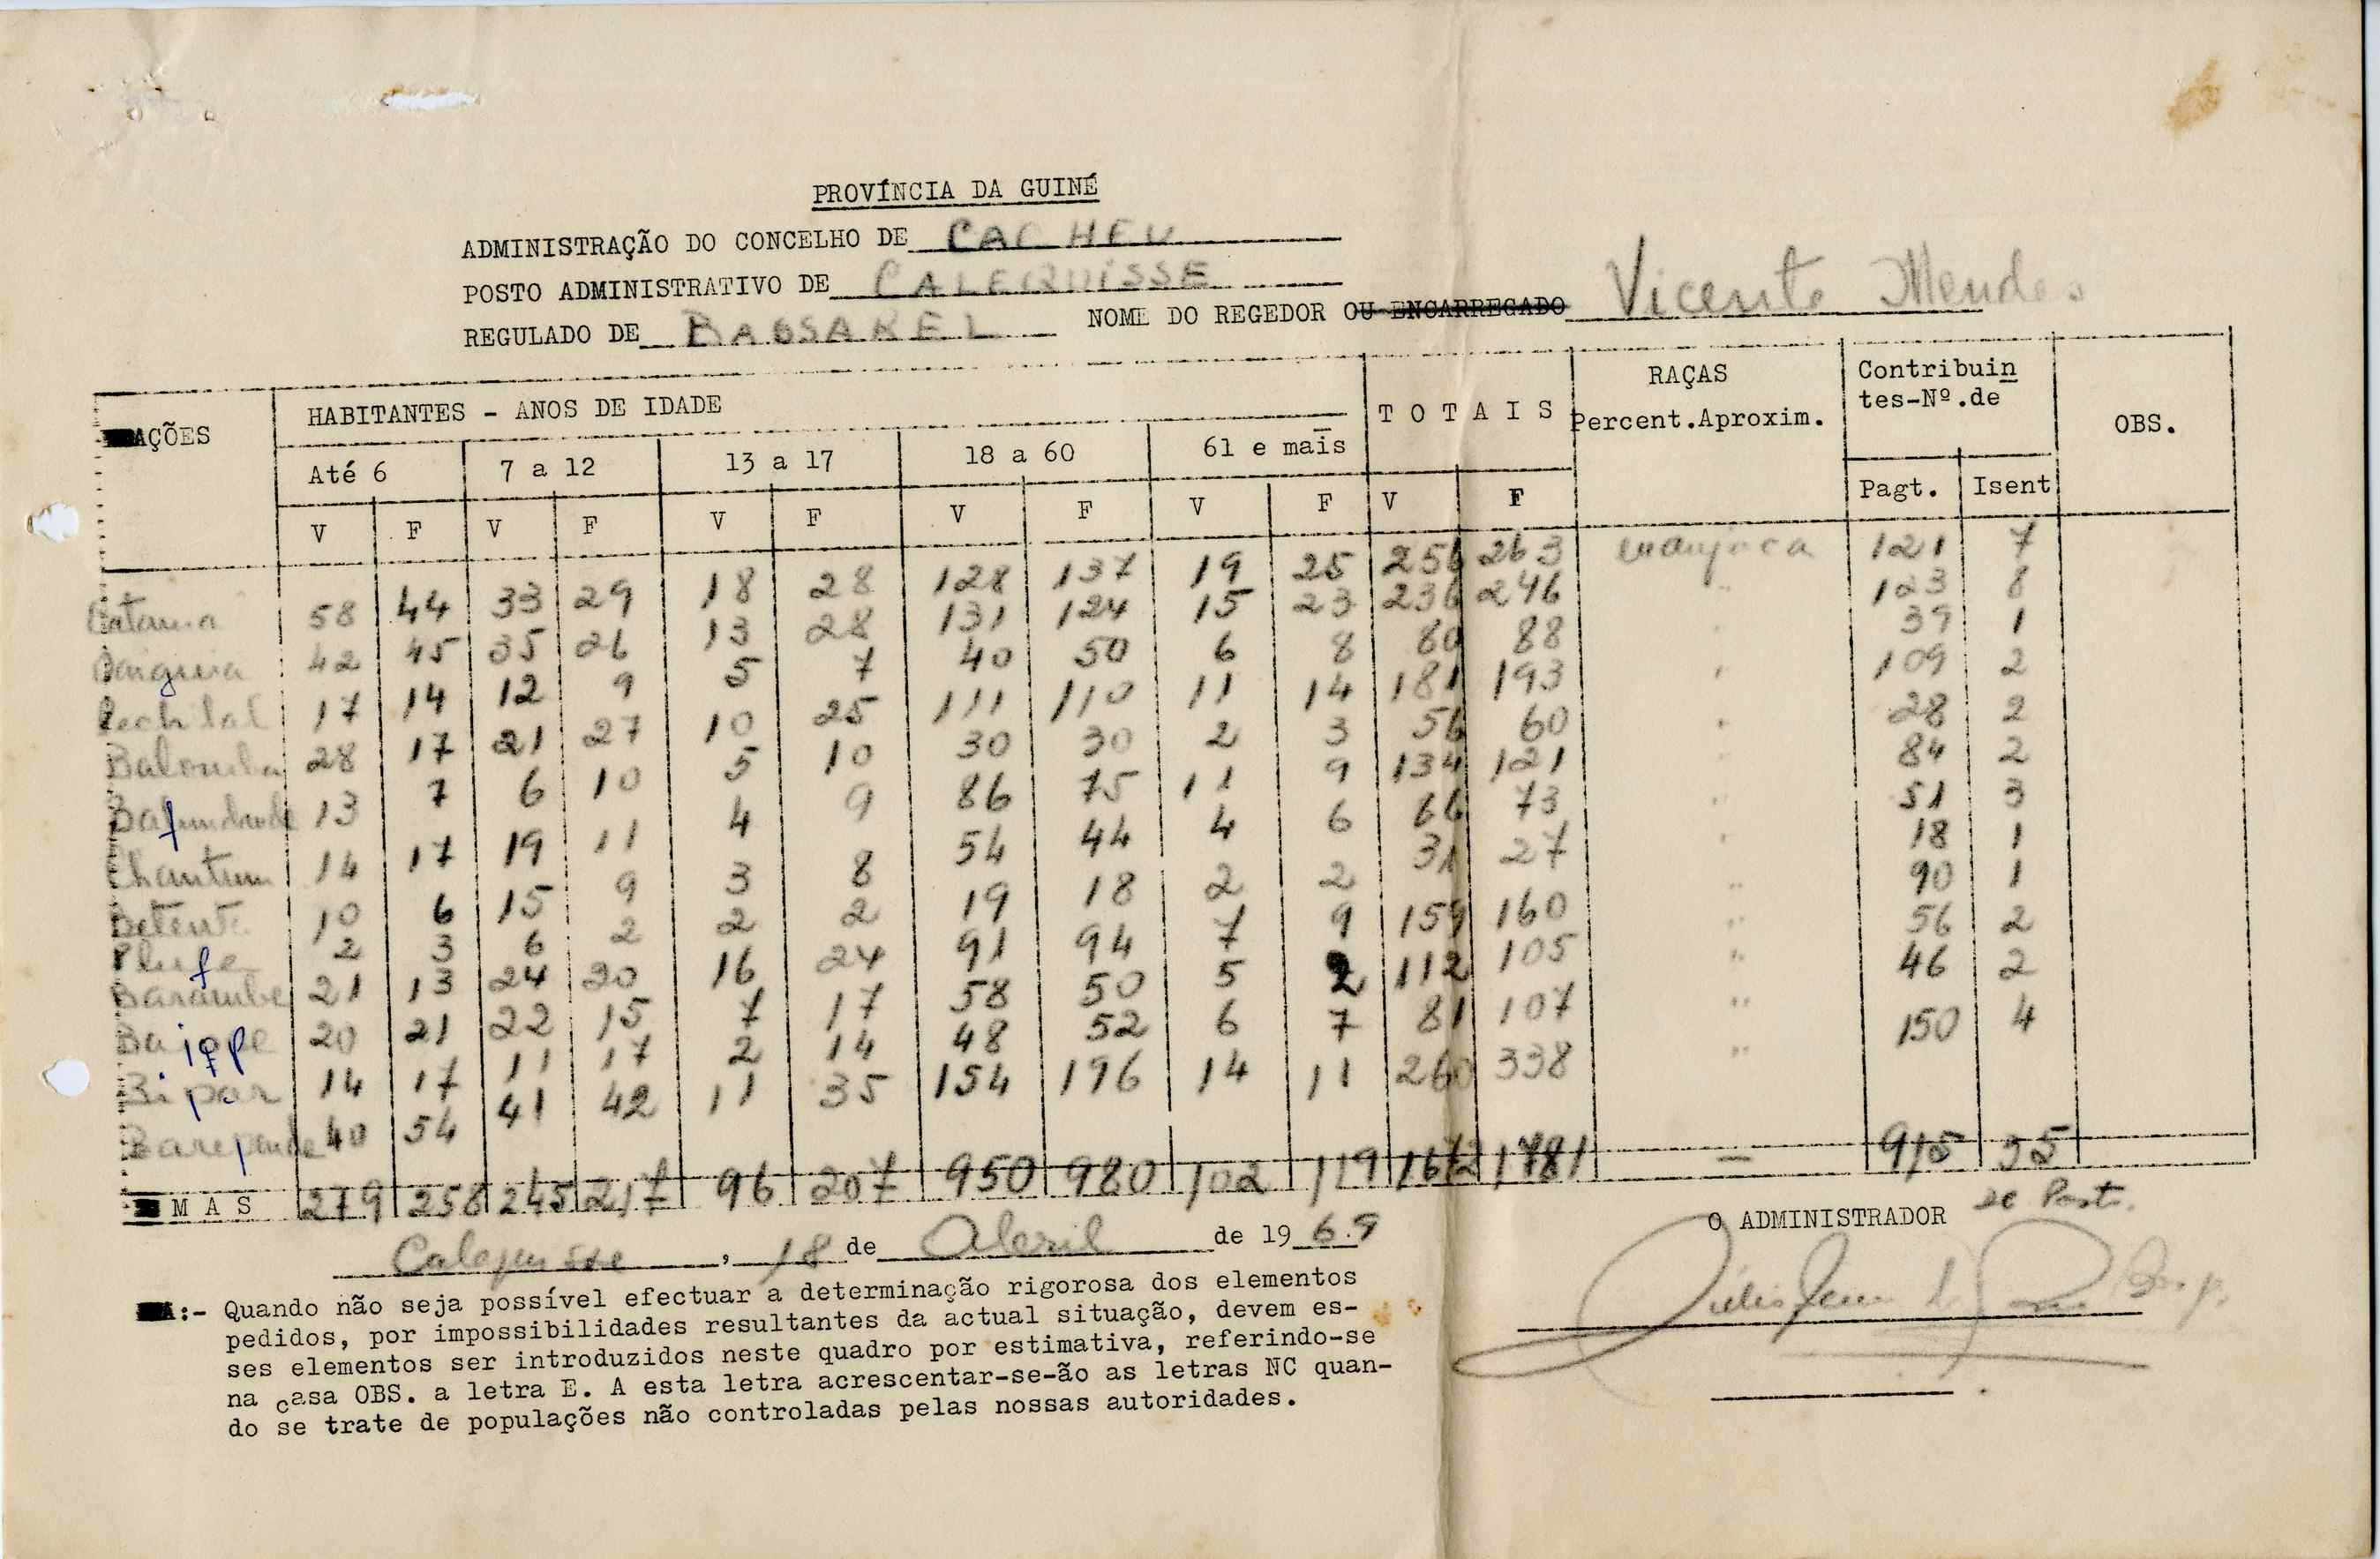 PROVÍNCIA DA GUINÉ
ADMINISTRAÇÃO DO CONCELHO DE CACHEU
POSTO ADMINISTRATIVO DE CALEQUISSE
REGULADO DE BASSAREL NOME DO REGEDOR OU ENCARREGADO Vicente Mendes
AÇÕES HABITANTES - ANOS DE IDADE TOTAIS RAÇAS Percent.Aproxim. Contribuin tes-Nº.de OBS.
Até 6 7 a 12 13 a 17 18 a 60 61 e mais Pagt. Isent
V F V F V F V F V F V F
Catama 58 44 33 29 18 28 128 137 19 25 256 263 manjaca 121 7
Baiguia 42 45 35 26 13 28 131 124 15 23 236 246 " 123 8
Pechilal 17 14 12 9 5 7 40 50 6 8 80 88 " 39 1
Balomba 28 17 21 27 10 25 111 110 11 14 181 193 " 109 2
Bafundande 13 7 6 10 5 10 30 30 2 3 56 60 " 28 2
Chantum 14 17 19 11 4 9 86 75 11 9 134 121 " 84 2
Betente 10 6 15 9 3 8 54 44 4 6 66 73 " 51 3
Plufe 2 3 6 2 2 2 19 18 2 2 31 27 " 18 1
Barambe 21 13 24 20 16 24 91 94 7 9 159 160 " 90 1
Baippe 20 21 22 15 7 17 58 50 5 2 112 105 " 56 2
Bipar 14 17 11 17 2 14 48 52 6 7 81 107 " 46 2
Barepande 40 54 41 42 11 35 154 196 14 11 260 338 " 150 4
MAS 279 258 245 217 96 207 950 980 102 119 1672 1781 — 915 35
Calequisse, 18 de Abril de 1969
O ADMINISTRADOR de Posto.
A:- Quando não seja possível efectuar a determinação rigorosa dos elementos
pedidos, por impossibilidades resultantes da actual situação, devem es-
ses elementos ser introduzidos neste quadro por estimativa, referindo-se
na casa OBS. a letra E. A esta letra acrescentar-se-ão as letras NC quan-
do se trate de populações não controladas pelas nossas autoridades.